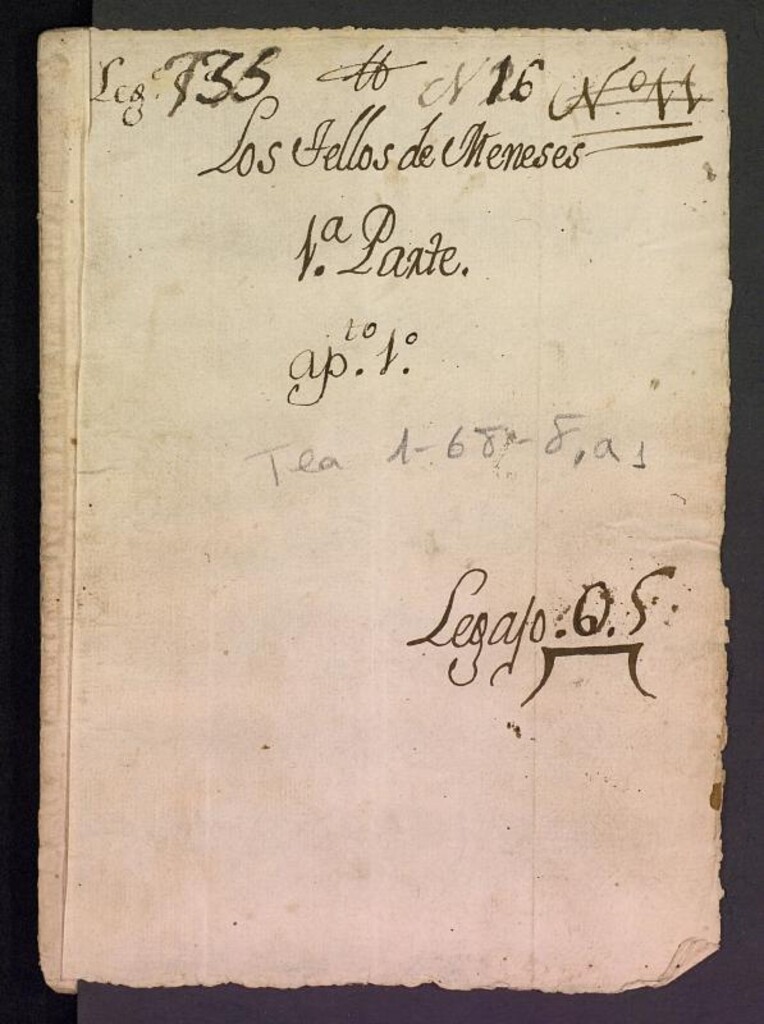 Leg.º 735 N 16 Nº 11
Los Tellos de Meneses
1.ª Parte.
ap.to 1.º
Tea 1-68-8, a1
Legajo. 6. S.